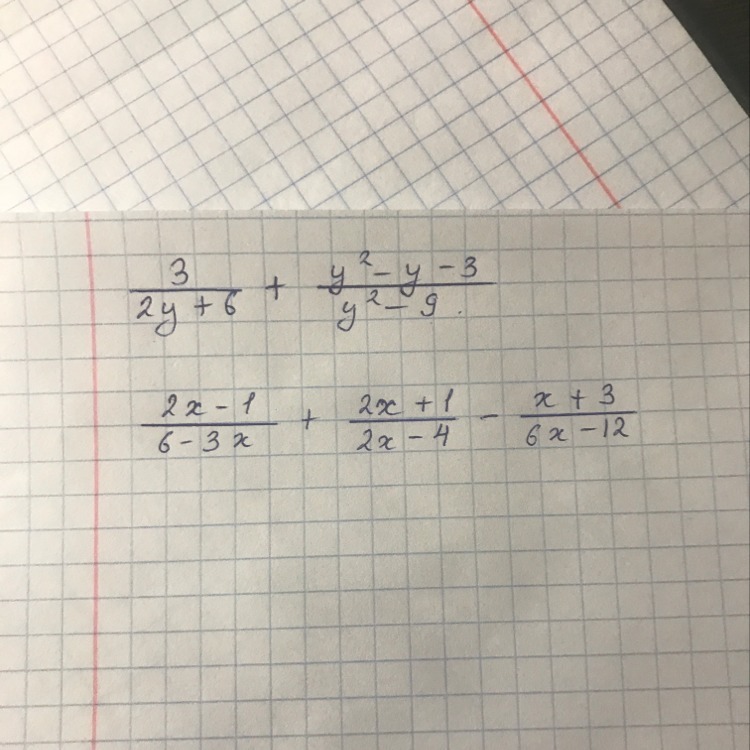 3/(2y + 6) + (y² - y - 3)/(y² - 9)
(2x - 1)/(6 - 3x) + (2x + 1)/(2x - 4) - (x + 3)/(6x - 12)